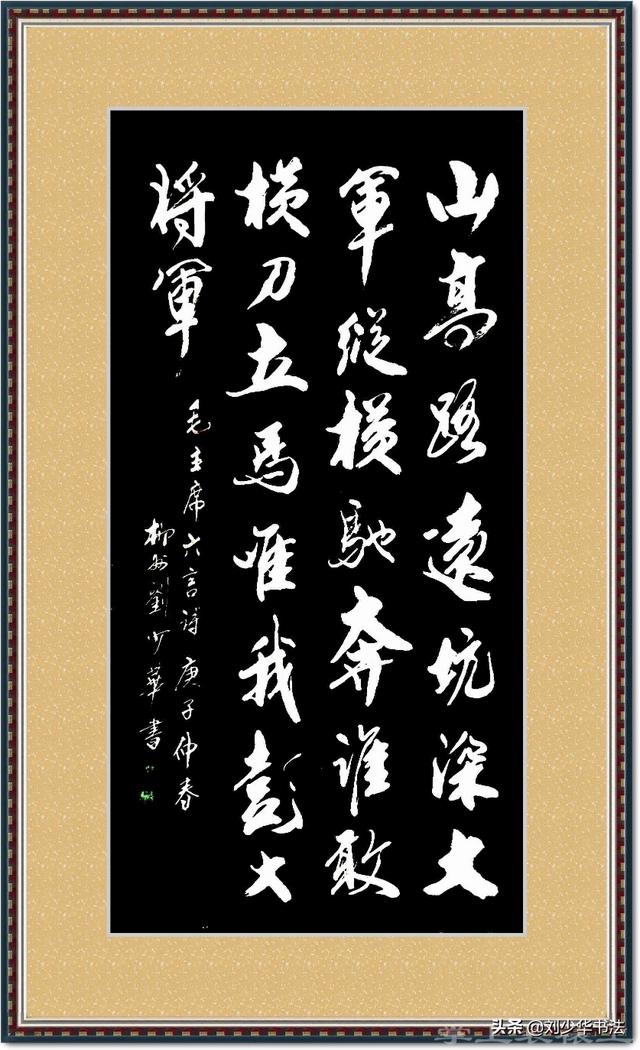 山高路遠坑深大
軍縱橫馳奔誰敢
横刀立馬唯我彭大
将軍
毛主席六言詩 庚子仲春
柳州劉少華書
头条@刘少华书法